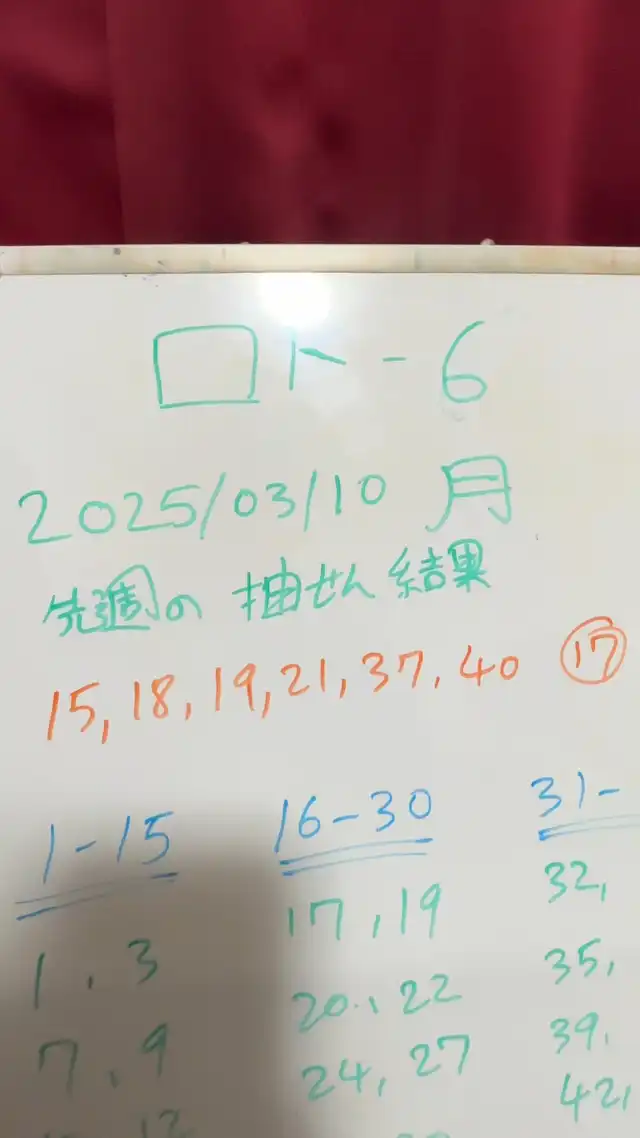 ロト-6
2025/03/10 月
先週の 抽せん 結果
15, 18, 19, 21, 37, 40 ⑰
1-15 16-30 31-
1, 3 17, 19 32,
7, 9 20, 22 35,
12 24, 27 39,
42,